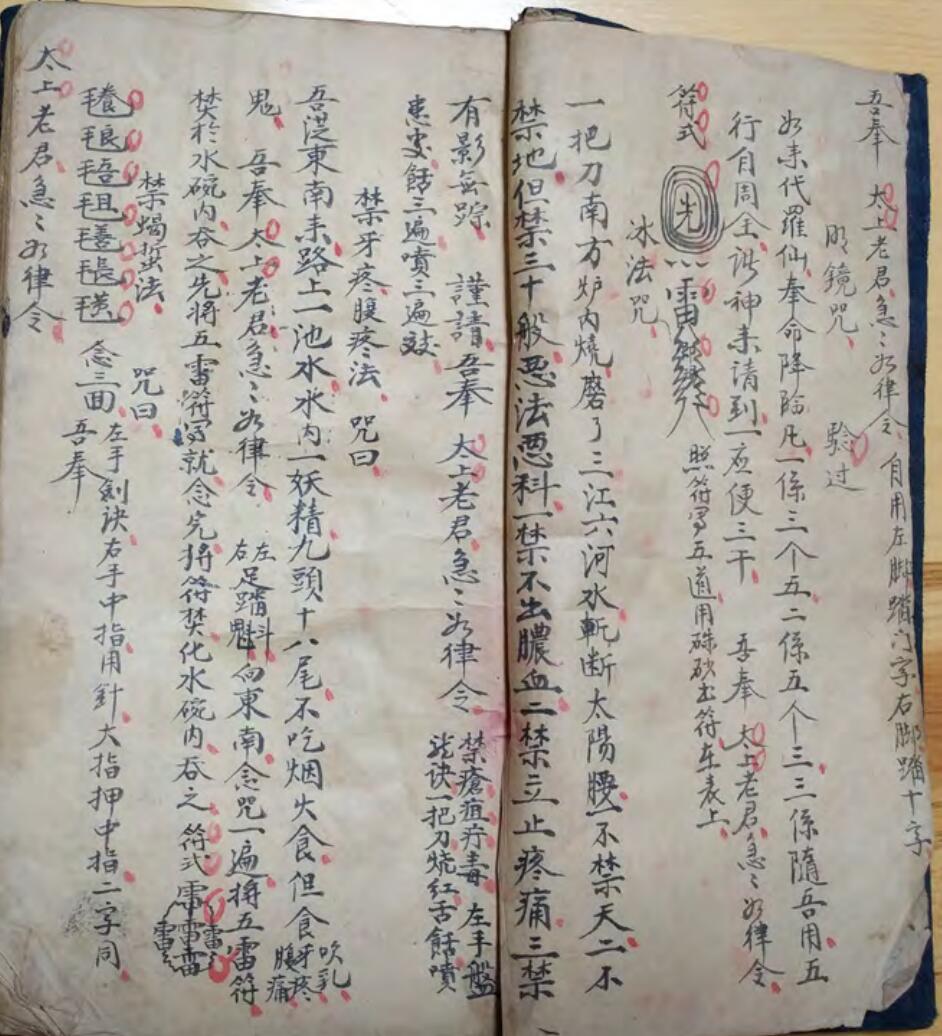 吾奉 太上老君急〻如律令 自用左脚踏门字右脚踏十字
明鏡咒 驗过
如来代羅仙奉命降臨凡一係三个五二係五个三三係隨吾用五
行自周全 神来請到一应便三干 吾奉 太上老君急〻如律令
符式 先 雷 照符写五道用硃砂 符在表上
冰法咒
一把刀南方炉内燒磨了三江六河水斬断太陽腰一不禁天二不
禁地但禁三十般悪法悪科一禁不出膿血二禁立止疼痛三禁
有影無踪 謹請吾奉 太上老君急〻如律令 禁瘡疽疔毒 左手盤
龙诀一把刀烧红舌餂噴
患处餂三遍噴三遍效
禁牙疼腹疼法 咒曰
吾従東南来路上一池水水内一妖精九頭十八尾不吃烟火食但食 吹乳牙疼腹痛
鬼 吾奉太上老君急〻如律令 左右足踏魁斗向東南念咒一遍将五雷符
焚於水碗内吞之先將五雷符写就念完将符焚化水碗内吞之 符式 雷雷雷雷雷
禁蝎蜇法 咒曰
念三面 左手劍诀右手中指用針大指押中指二字同
吾奉
太上老君急〻如律令